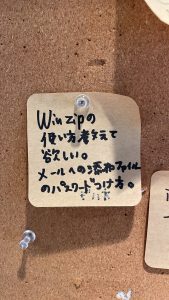 Winzipの
使い方教えて
欲しい。
メールへの添付ファイル
のパスワードつけ方。